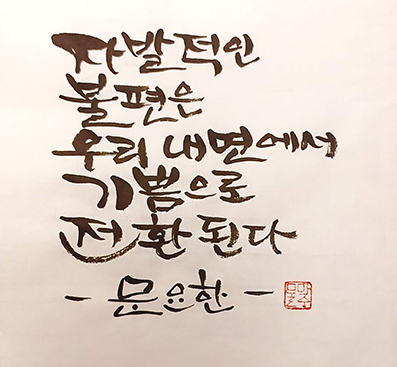 자발적인
불편은
우리 내면에서
기쁨으로
전환된다
- 문요한 -